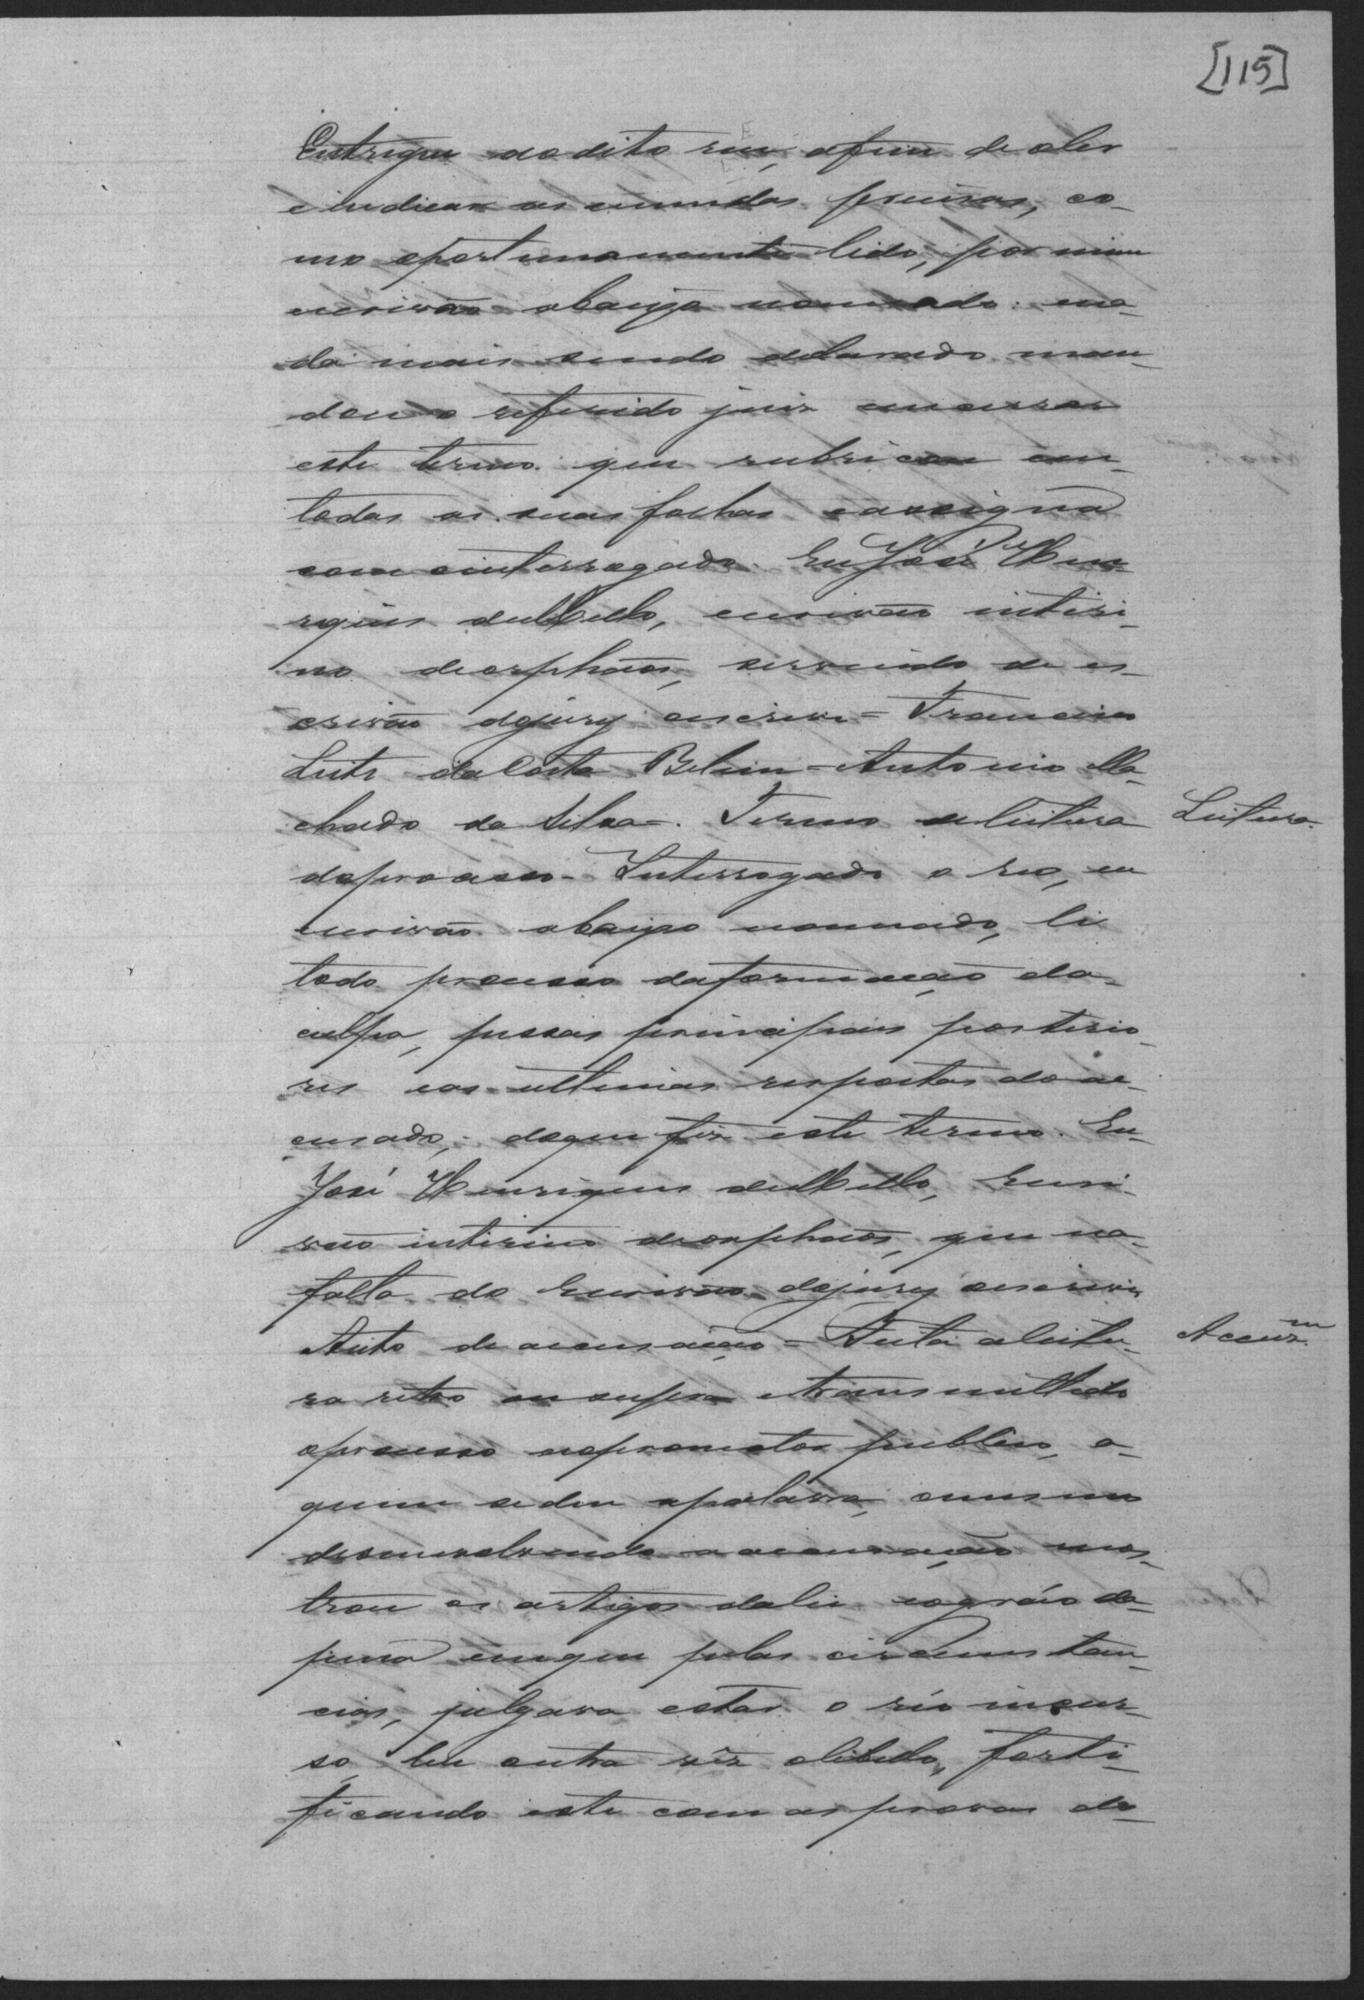 [115]
Entregue ao dito reu, afim de o ler
e indicar as emendas precisas, co-
mo opportunamente lido, por mim
escrivão abaixo nomeado: na-
da mais sendo declarado man-
dou o referido juiz encerrar
este termo que rubricou em
todas as suas folhas e assigna
com o interrogado. Eu José Hen-
riques de Mello, escrivão interi-
no de orphãos, servindo de es-
crivão do jury escrevi = Francisco
Leite da Costa Belem = Antonio Ma-
chado da Silva =. Termo de leitura
Leitura.
do processo = Interrogado o reo, eu
escrivão abaixo nomeado, li
todo processo da formação da
culpa, pessas principais posterio-
res e as ultimas respostas do ac-
cusado; do que fiz este termo. Eu
José Henriques de Mello, Escri-
vão interino de orphãos, que na
falta do Escrivão do jury escrevi
Auto de accusação = Feita a leitu-
Accuz.m
ra retro ou supra e transmittido
o processo ao promotor publico, a
quem se deu a palavra, o mesmo
desenvolvendo a accusação mos-
trou os artigos da lei e o gráo da
pena em que pelas circumstan-
cias, julgava estar o réo incur-
so, leu outra vêz o libello, forti-
ficando este com as provas do